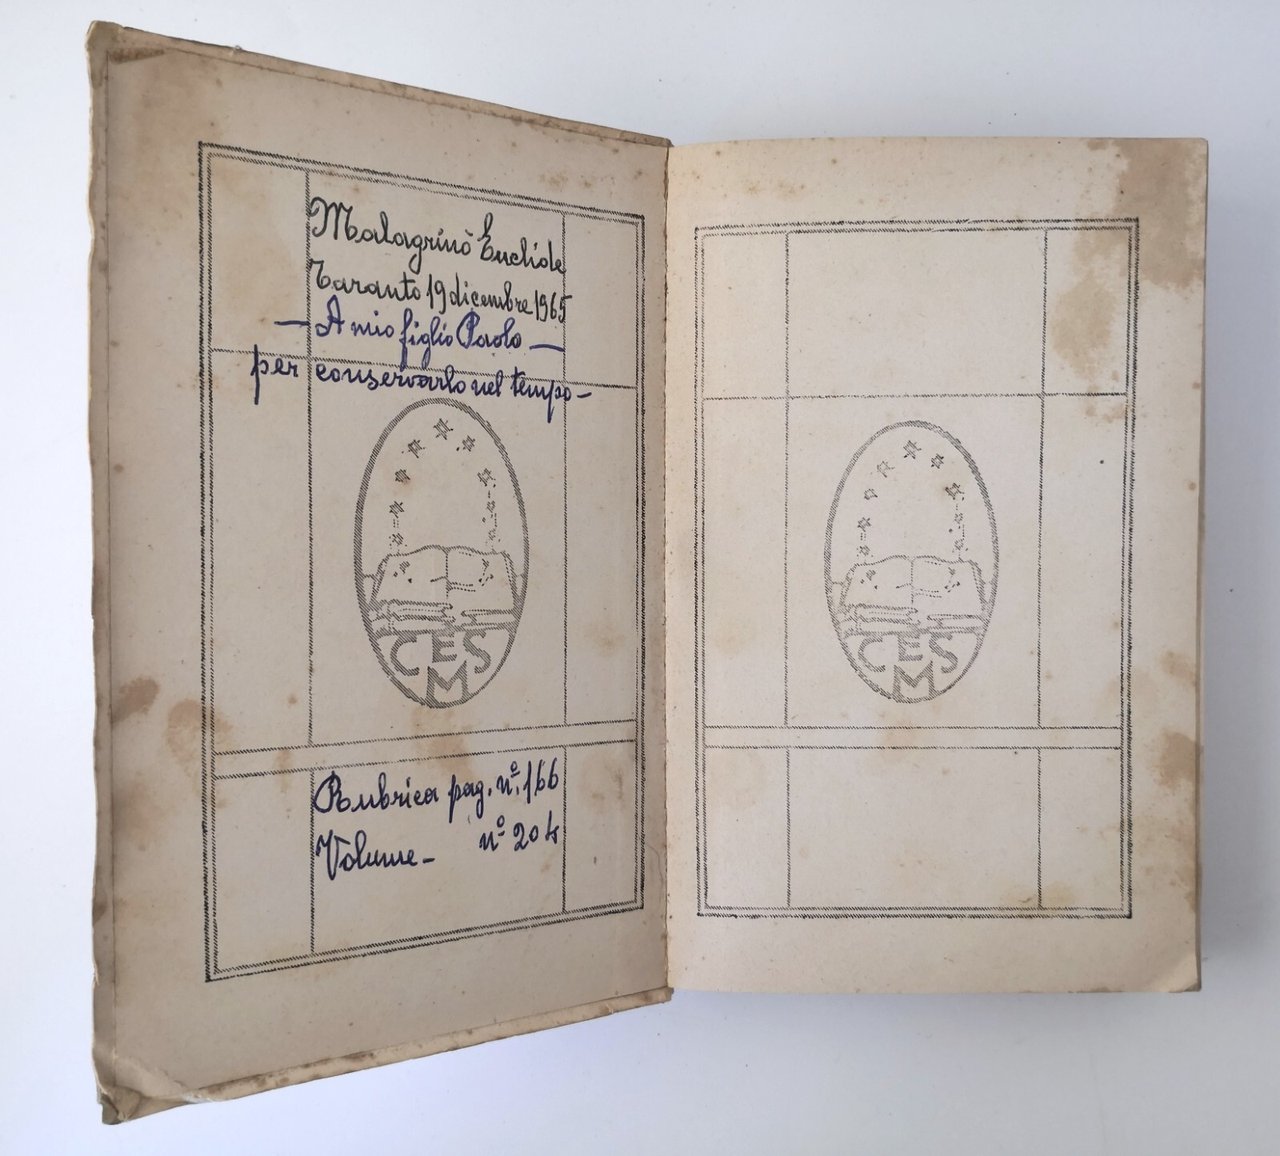 Malagrinò Euclide
Taranto 19 dicembre 1965
— A mio figlio Paolo —
per conservarlo nel tempo —
CES
M
Rubrica pag. nº. 166
Volume — nº 204
CES
M